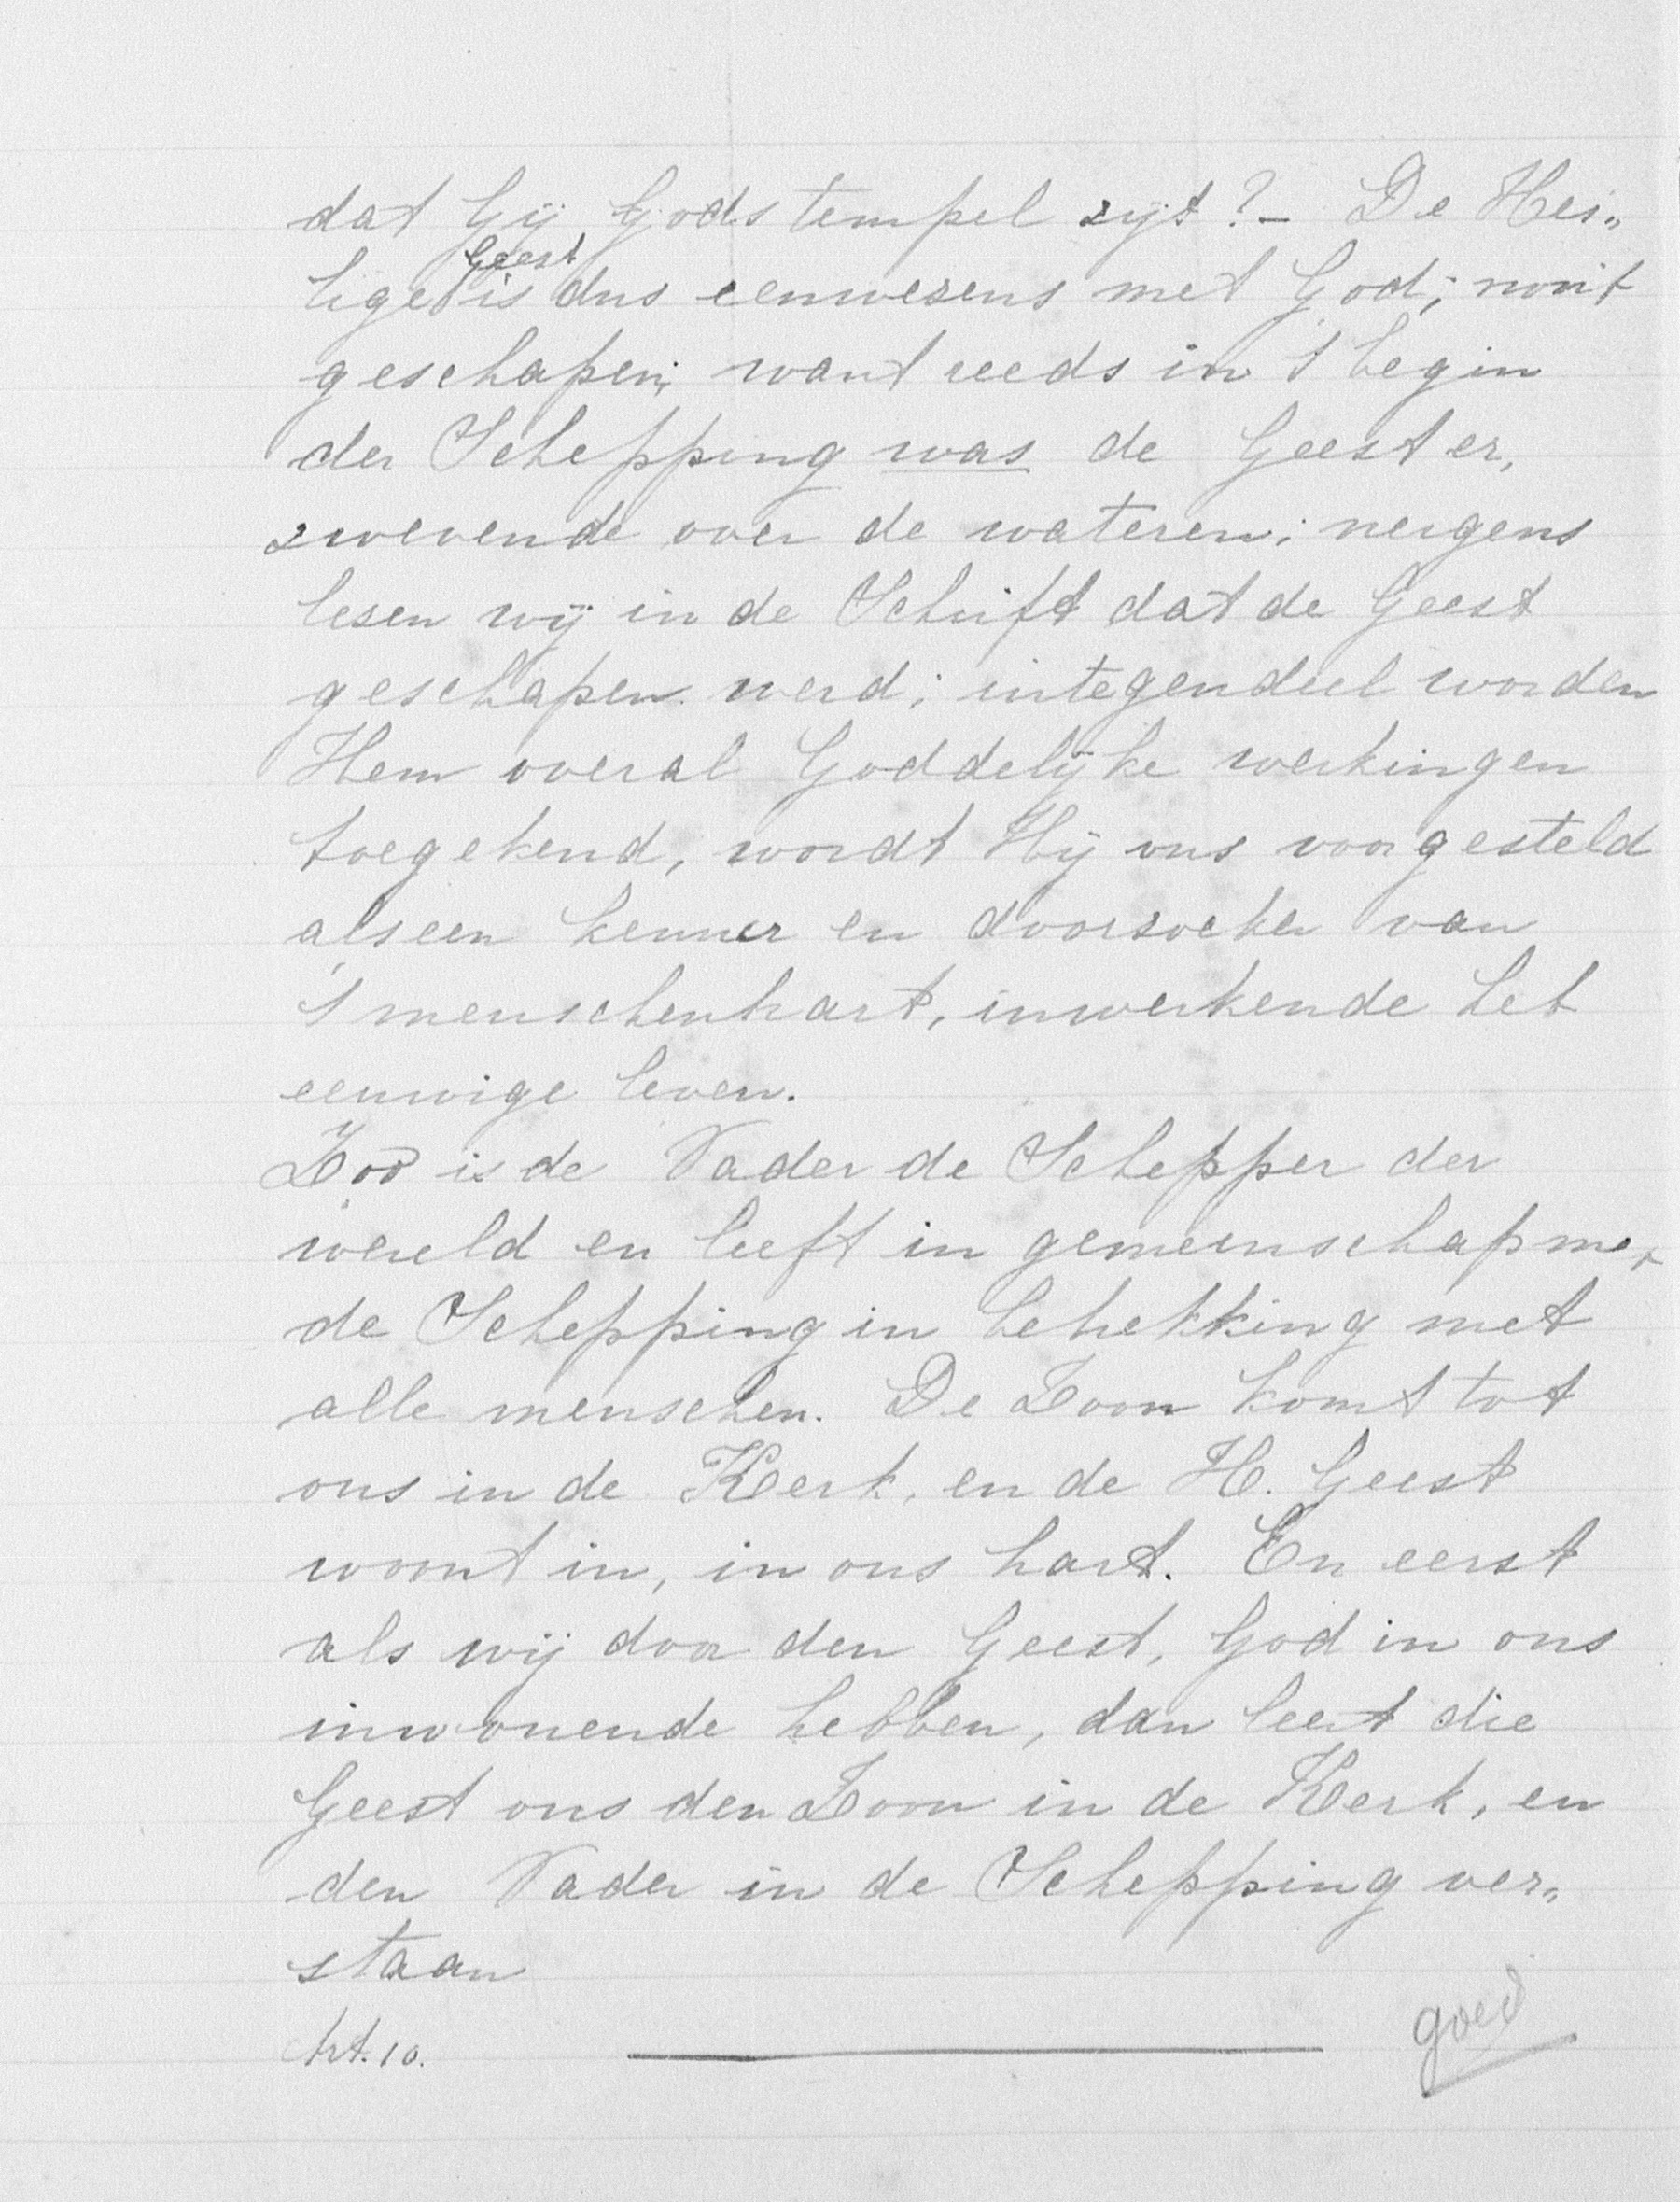 dat Gij Gods tempel zijt? – De Hei„
lige Geest is dus eenwezens met God; nooit
geschapen; want reeds in 't begin
der Schepping was de Geest er,
zwevende over de wateren; nergens
lezen wij in de Schrift dat de Geest
geschapen werd; integendeel worden
Hem overal Goddelijke werkingen
toegekend, wordt Hij ons voorgesteld
als een kenner en doorzoeker van
't menschenhart, inwerkende het
eeuwige leven.
Zoo is de Vader de Schepper der
wereld en leeft in gemeenschap met
de Schepping in betrekking met
alle menschen. De Zoon komt tot
ons in de Kerk, en de H. Geest
woont in, in ons hart. En eerst
als wij door den Geest, God in ons
inwonende hebben, dan leert die
Geest ons den Zoon in de Kerk, en
den Vader in de Schepping ver„
staan
Art. 10.
goed